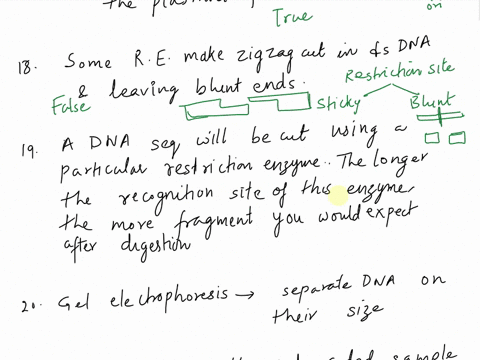 the plasmid
on
True
18. Some R.E. make zigzag cut in ds DNA
& leaving blunt ends.
Restriction site
False
Sticky
Blunt
19. A DNA seq will be cut using a
particular restriction enzyme. The longer
the recognition site of this enzyme,
the more fragment you would expect
after digestion
20. Gel electrophoresis → separate DNA on
their size
sample